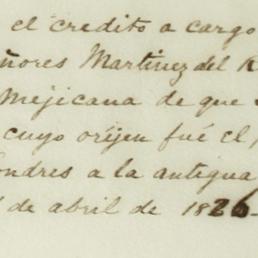 el credito a cargo
ñores Martinez del R
Mejicana de que
cuyo oríjen fué el
ondres a la antigua
de abril de 1826